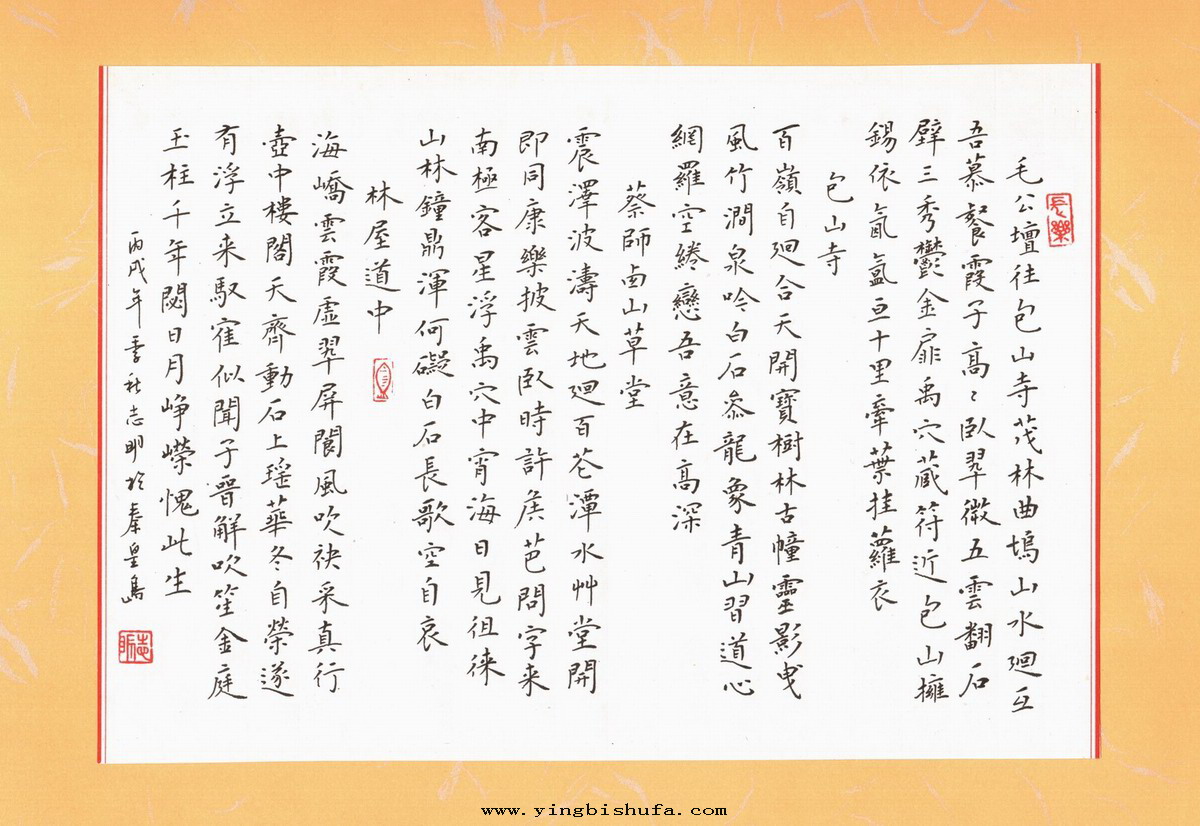 長樂
毛公壇往包山寺茂林曲塢山水廻互
吾慕餐霞子高〻臥翠微五雲翻石
壁三秀鬱金扉禹穴蔵符近包山擁
錫依氤氳亘十里牽葉挂蘿衣
包山寺
百嶺自廻合天開寶樹林古幢靈影曵
風竹澗泉吟白石叅龍象青山習道心
網羅空綣戀吾意在高深
蔡師卤山草堂
震澤波濤天地廻百花潭水艸堂開
即同康樂披雲臥時許矦芭問字来
南極客星浮禹穴中宵海日見徂徠
山林鐘鼎渾何礙白石長歌空自哀
林屋道中
海嶠雲霞虛翠屏閬風吹袂采真行
壺中樓閣天齊動石上瑶華冬自榮遂
有浮立来馭寉似聞子晉解吹笙金庭
玉柱千年閟日月峥嶸愧此生
丙戌年季秋志明於秦皇島
www.yingbishufa.com